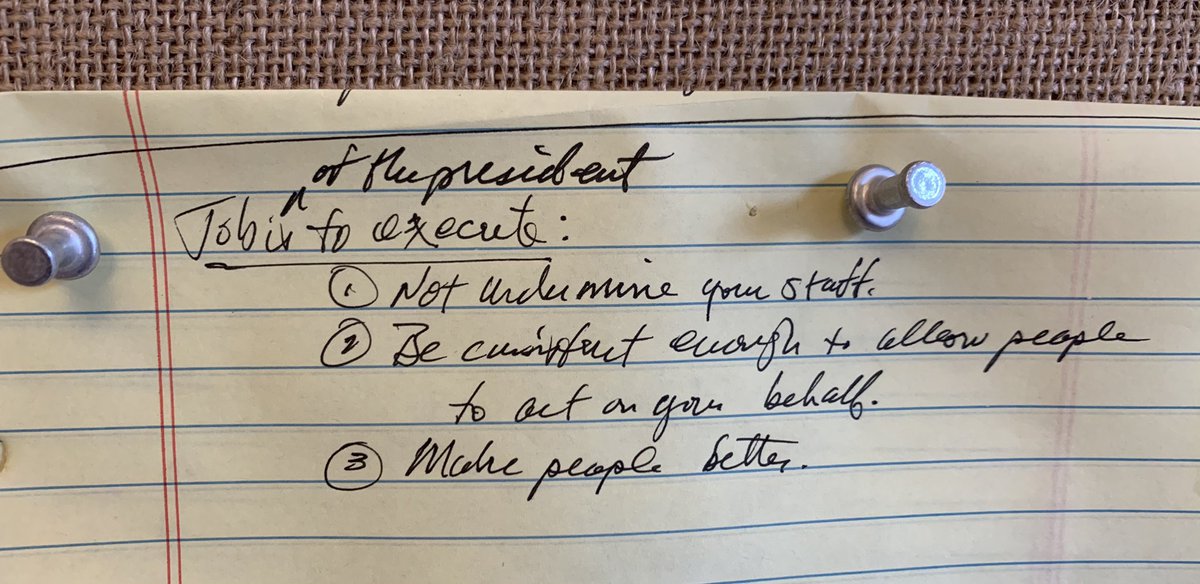 of the president
Job is ^ to execute:
① Not undermine your staff.
② Be consistent enough to allow people
to act on your behalf.
③ Make people better.